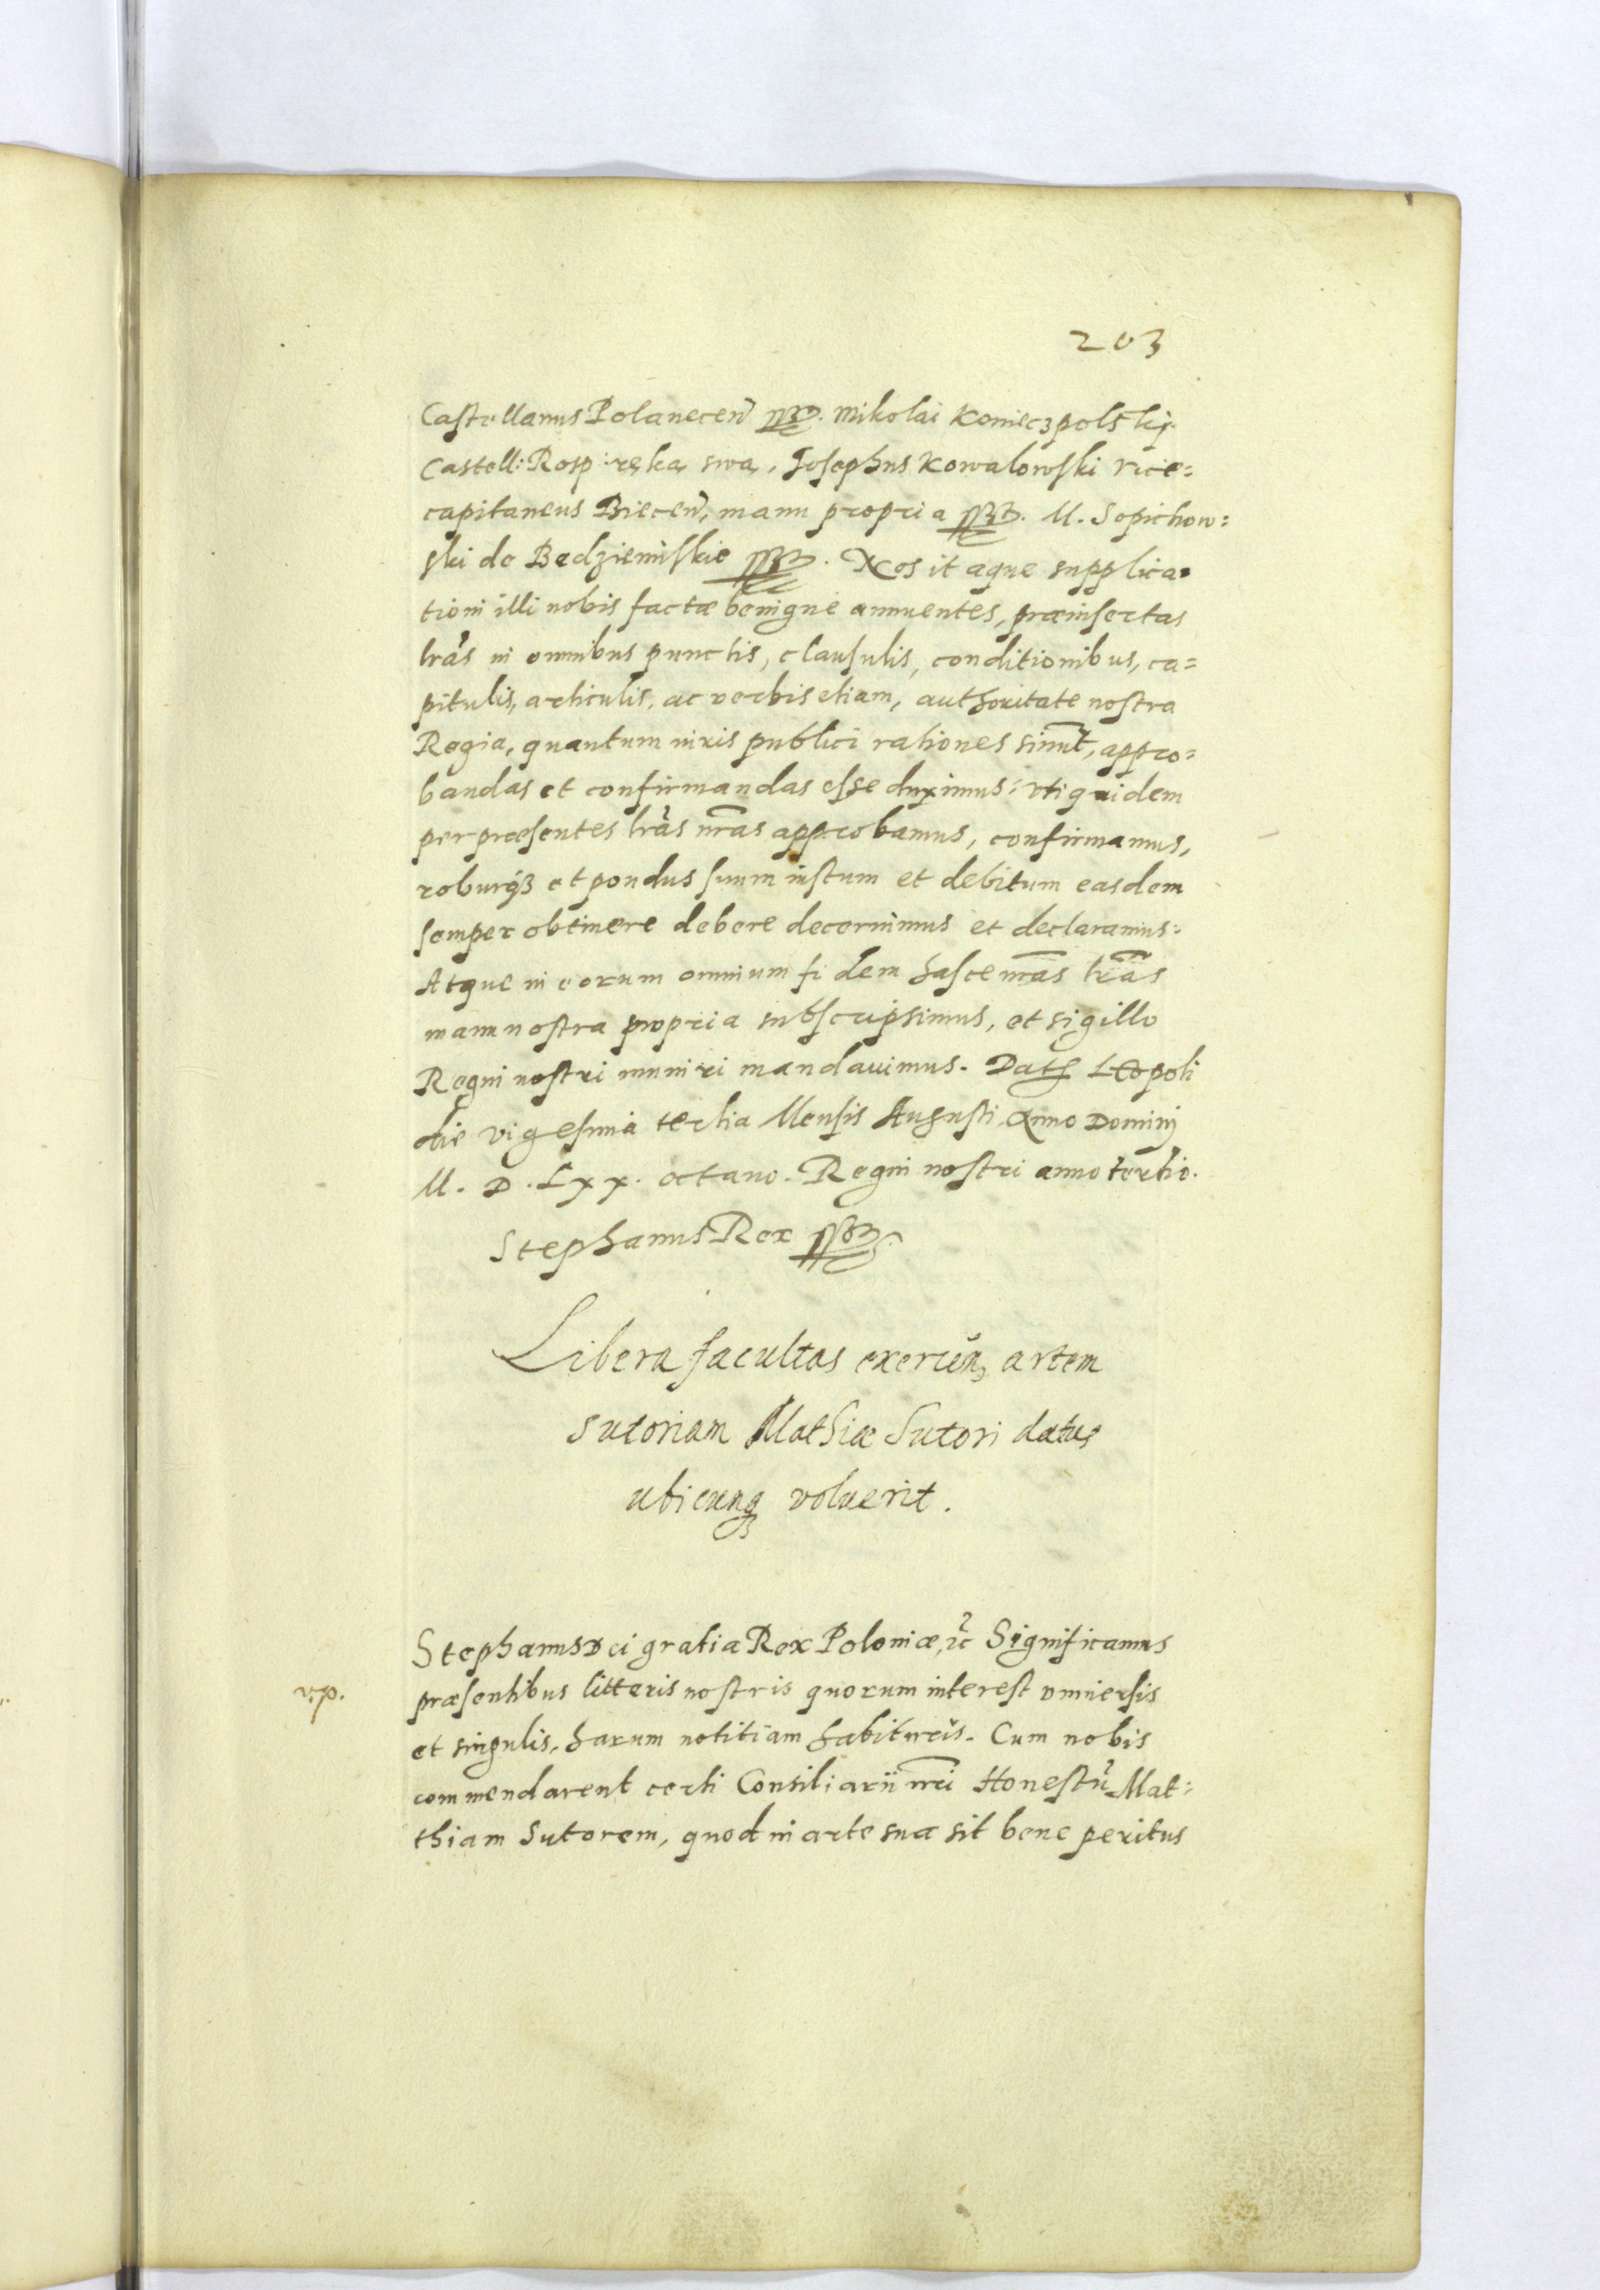 203
Castellanus Polanecen̄ sszt. Mikolai Konieczpolskij.
Castell: Rosp: ręką swą, Josephus Kowalowski Vice=
capitaneus Biecen̄, manu propria sszt. M. Sopichow=
ski de Bedziemiskie sszt. Nos itaque supplica=
tioni illi nobis factæ benigne annuentes, præinsertas
lrās in omnibus punctis, clausulis, conditionibus, ca=
pitulis, articulis, ac verbis etiam, authoritate nostra
Regia, quantum iuris publici rationes sinūt, appro=
bandas et confirmandas esse duximus: Vti quidem
per præsentes lrās nrās approbamus, confirmamus,
roburq̃ et pondus suum iustum et debitum easdem
semper obtinere debere decernimus et declaramus:
Atque in eorum omnium fidem hasce nrās lrās
manu nostra propria subscripsimus, et sigillo
Regni nostri muniri mandauimus. Dat Leopoli
die vigesima tertia Mensis Augusti, Anno Domini
M. D. Lxx. octauo. Regni nostri anno tertio.
Stephanus Rex sszt.
Libera facultas exercen, artem
sutoriam Mathiæ Sutori datur
ubicunq voluerit.
Stephanus Dei gratia Rex Poloniæ, ēc Significamus
v.p.
præsentibus litteris nostris quorum interest vniuersis
et singulis, harum notitiam habituris. Cum nobis
commendarent certi Consiliarii nrī Honestū Mat=
thiam Sutorem, quod in arte sua sit bene peritus